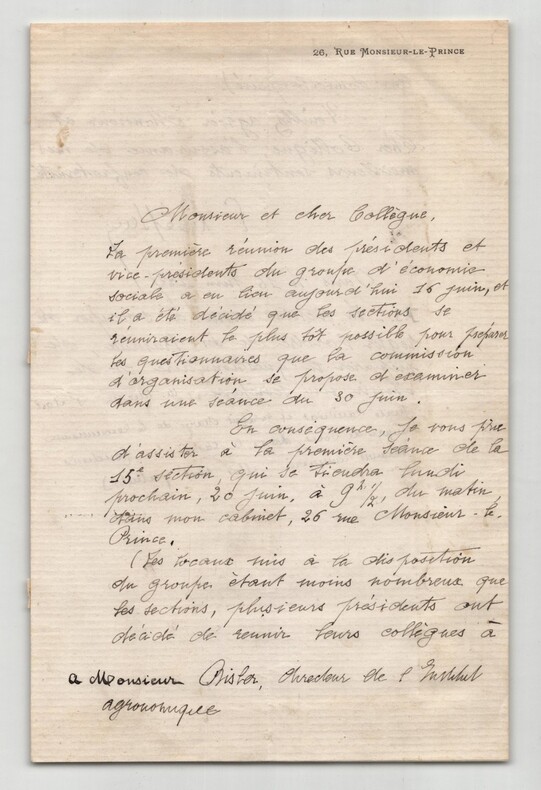 26, Rue Monsieur-le-Prince
Monsieur et cher Collègue,
La première réunion des présidents et
vice-présidents du groupe d'économie
sociale a eu lieu aujourd'hui 16 juin, et
il a été décidé que les sections se
réuniraient le plus tôt possible pour préparer
les questionnaires que la commission
d'organisation se propose d'examiner
dans une séance du 30 juin.
En conséquence, je vous prie
d'assister à la première séance de la
15e section, qui se tiendra lundi
prochain, 20 juin, à 9h 1/2, du matin,
dans mon cabinet, 26 rue Monsieur-le-
Prince.
(Les locaux mis à la disposition
du groupe étant moins nombreux que
les sections, plusieurs présidents ont
décidé de réunir leurs collègues à
a Monsieur Risler, directeur de l'Institut
agronomique